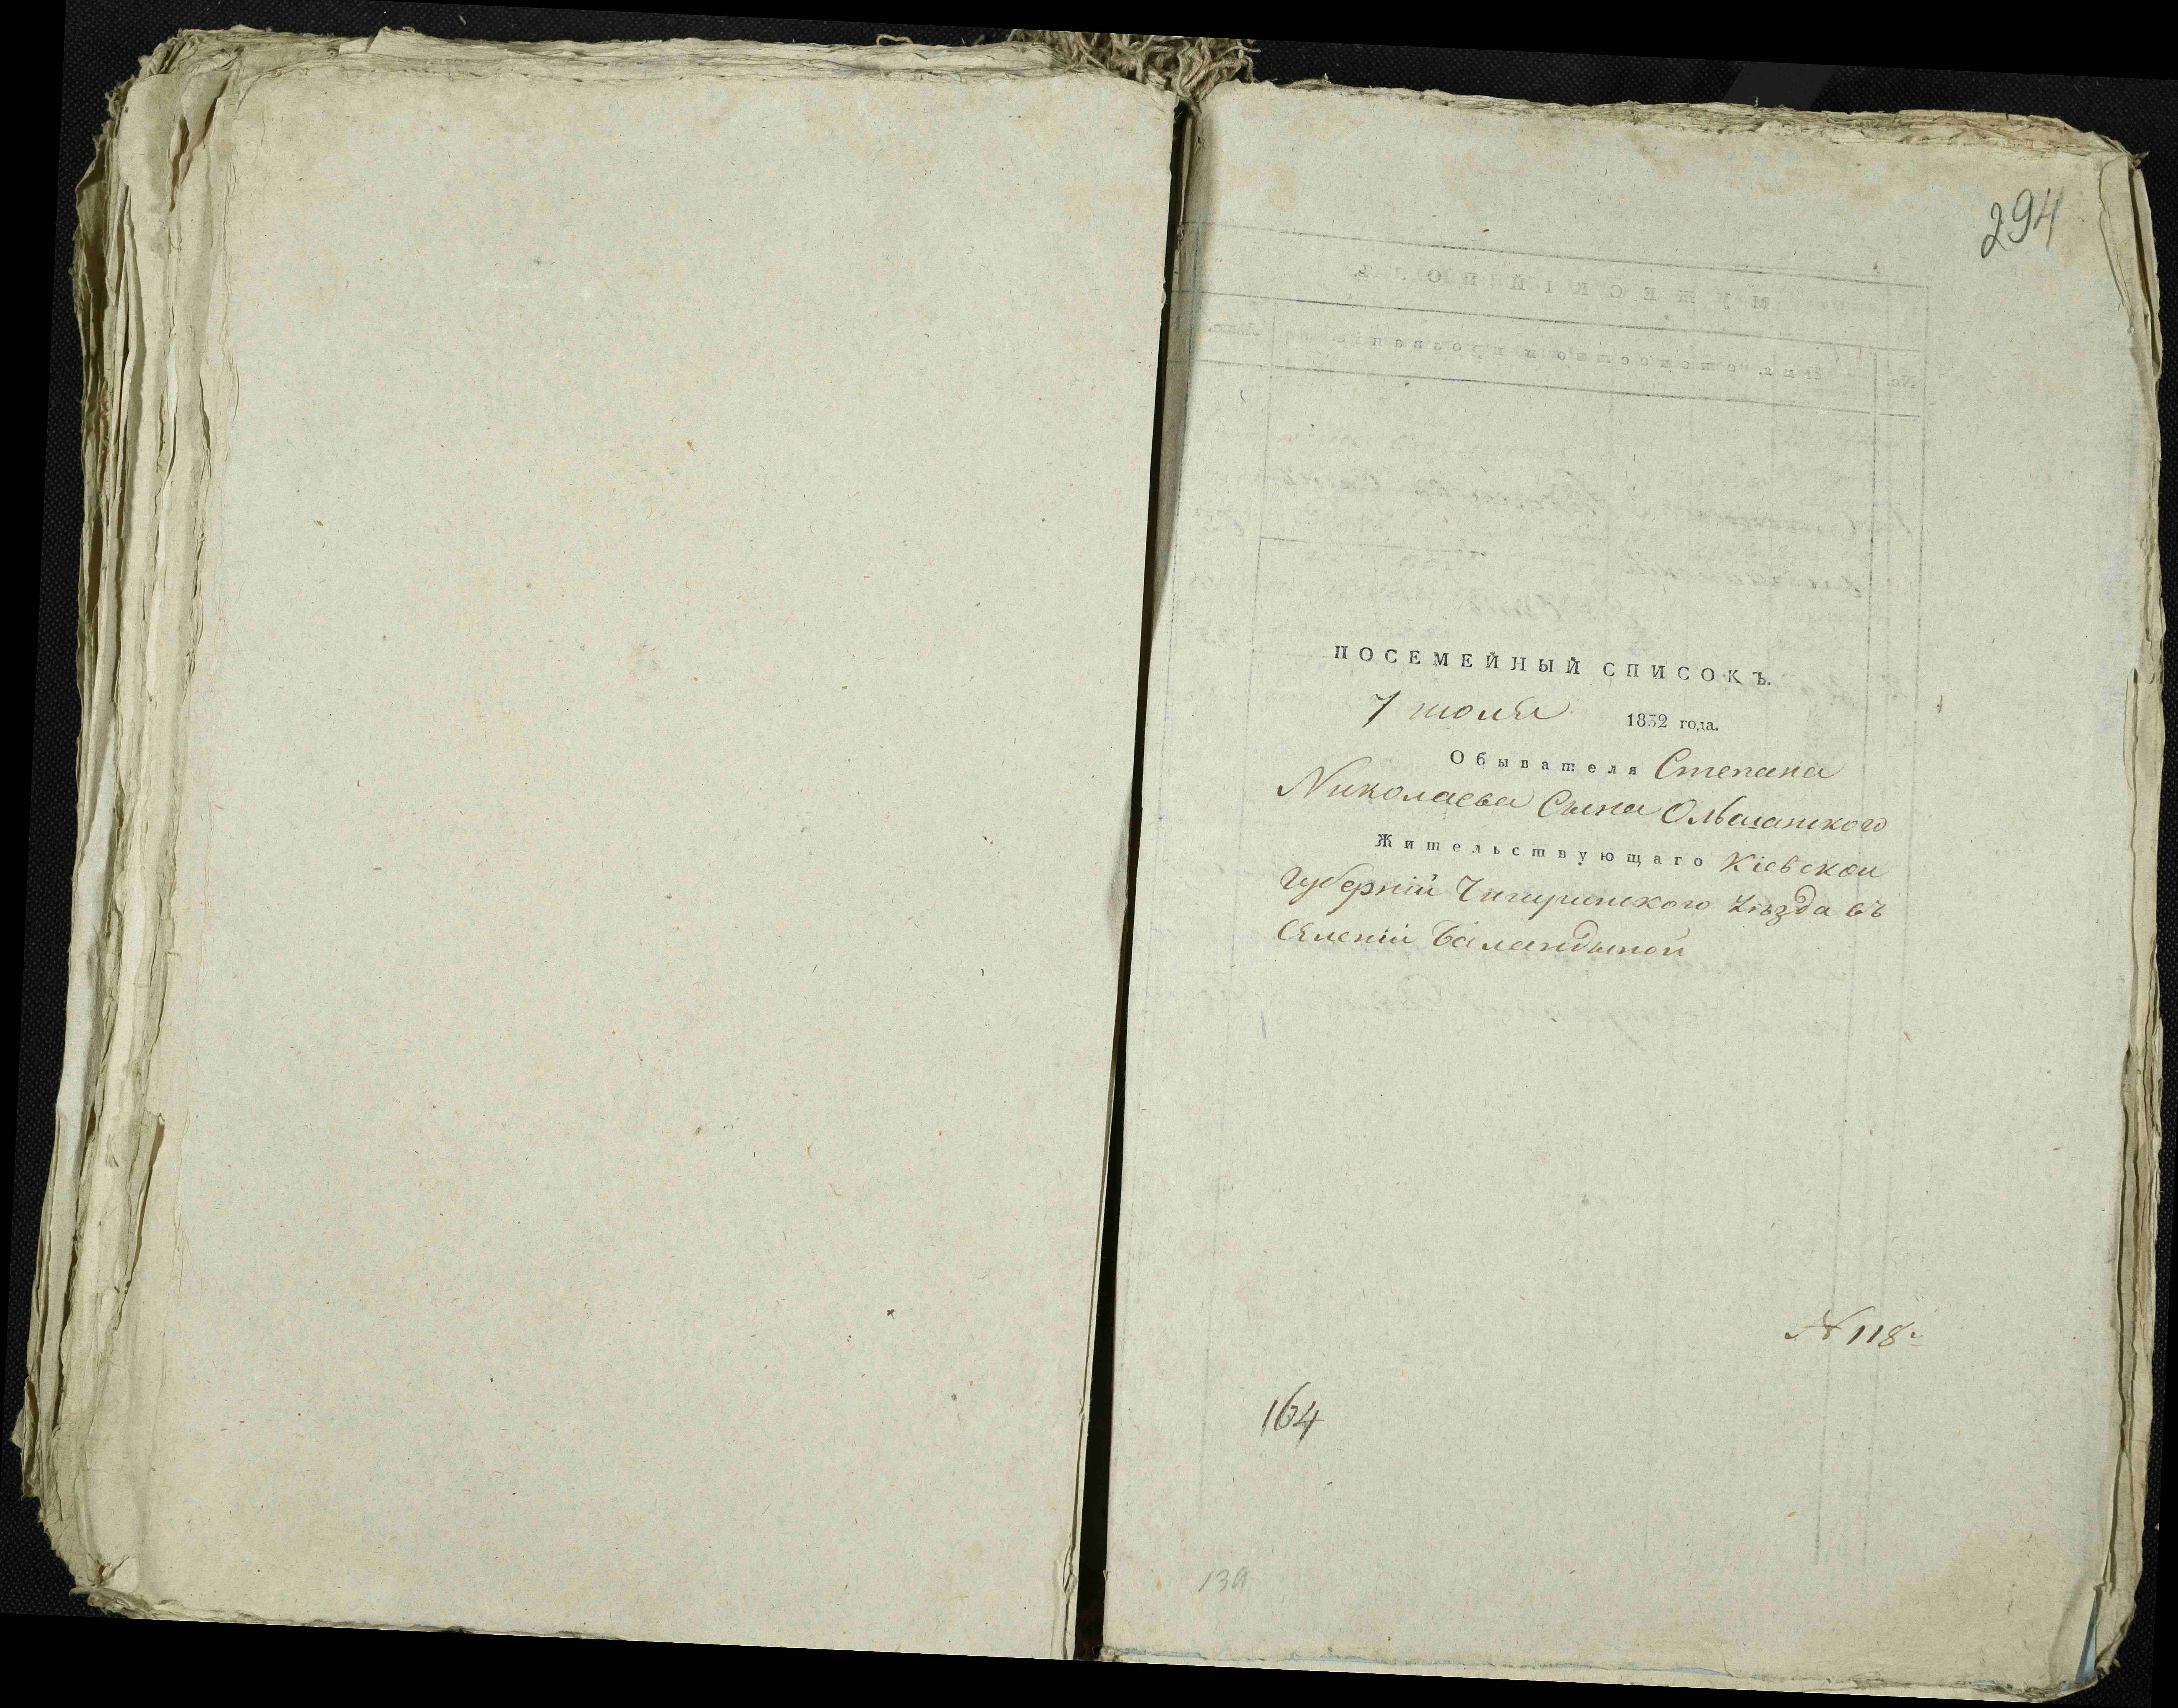 294
ПОСЕМЕЙНЫЙ СПИСОКЪ.
7 июля 1832 года.
Обывателя Степана
Николаева Сына Ольшанского
Жительствующаго Кіевской
Губерніи Чигиринского Уѣзда въ
Селеніи Баландыной
№ 118
164
139